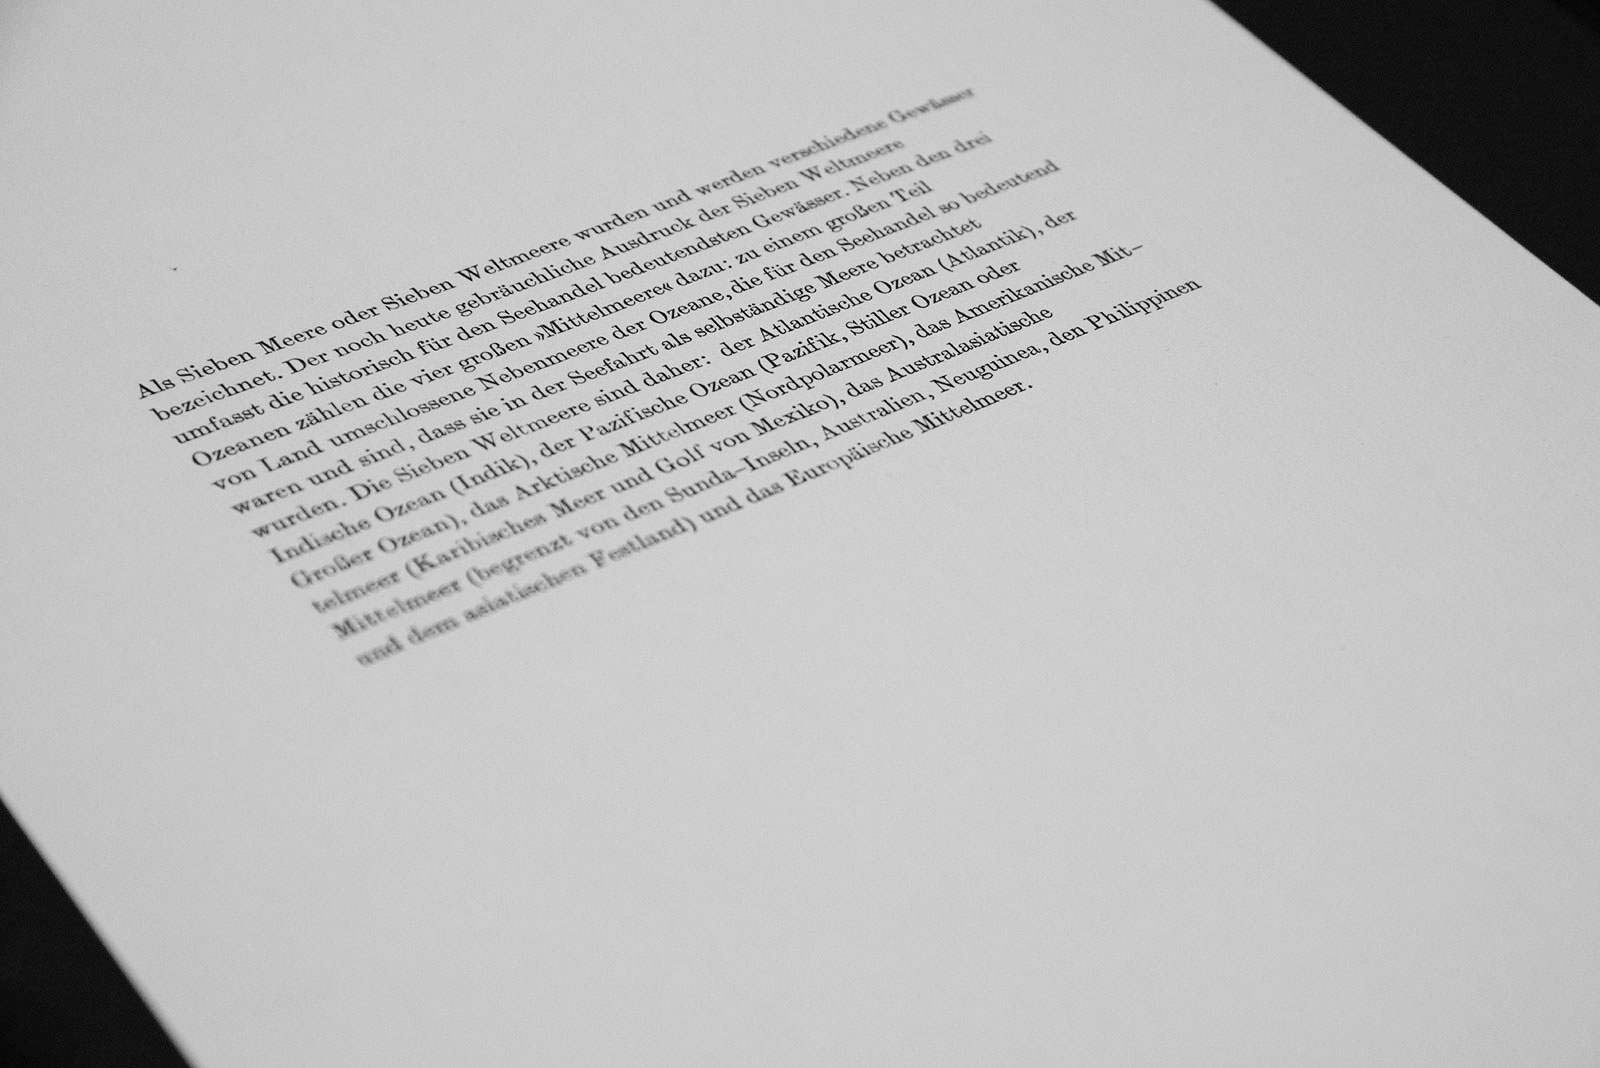 Als Sieben Meere oder Sieben Weltmeere wurden und werden verschiedene Gewässer
bezeichnet. Der noch heute gebräuchliche Ausdruck der Sieben Weltmeere
umfasst die historisch für den Seehandel bedeutendsten Gewässer. Neben den drei
Ozeanen zählen die vier großen »Mittelmeere« dazu: zu einem großen Teil
von Land umschlossene Nebenmeere der Ozeane, die für den Seehandel so bedeutend
waren und sind, dass sie in der Seefahrt als selbständige Meere betrachtet
wurden. Die Sieben Weltmeere sind daher: der Atlantische Ozean (Atlantik), der
Indische Ozean (Indik), der Pazifische Ozean (Pazifik, Stiller Ozean oder
Großer Ozean), das Arktische Mittelmeer (Nordpolarmeer), das Amerikanische Mit–
telmeer (Karibisches Meer und Golf von Mexiko), das Australasiatische
Mittelmeer (begrenzt von den Sunda–Inseln, Australien, Neuguinea, den Philippinen
und dem asiatischen Festland) und das Europäische Mittelmeer.